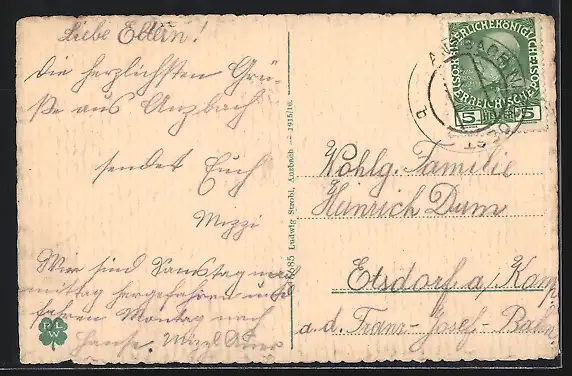 Liebe Eltern!
Die herzlichsten Grü-
ße aus Anzbach
sendet Euch
Mizzi
Wir sind Samstag nach
mittag hergefahren und
fahren Montag nach
Hause. Mizzl
RL
W
685 Ludwig Strobl, Anzbach — 1915/16.
KAISERLICHE KÖNIGLICHE
ÖSTERREICHISCHE
5 HELLER 5
b
Wohlg. Familie
Heinrich Dum
Etsdorf a/ Kamp
a.d. Franz-Josef-Bahn